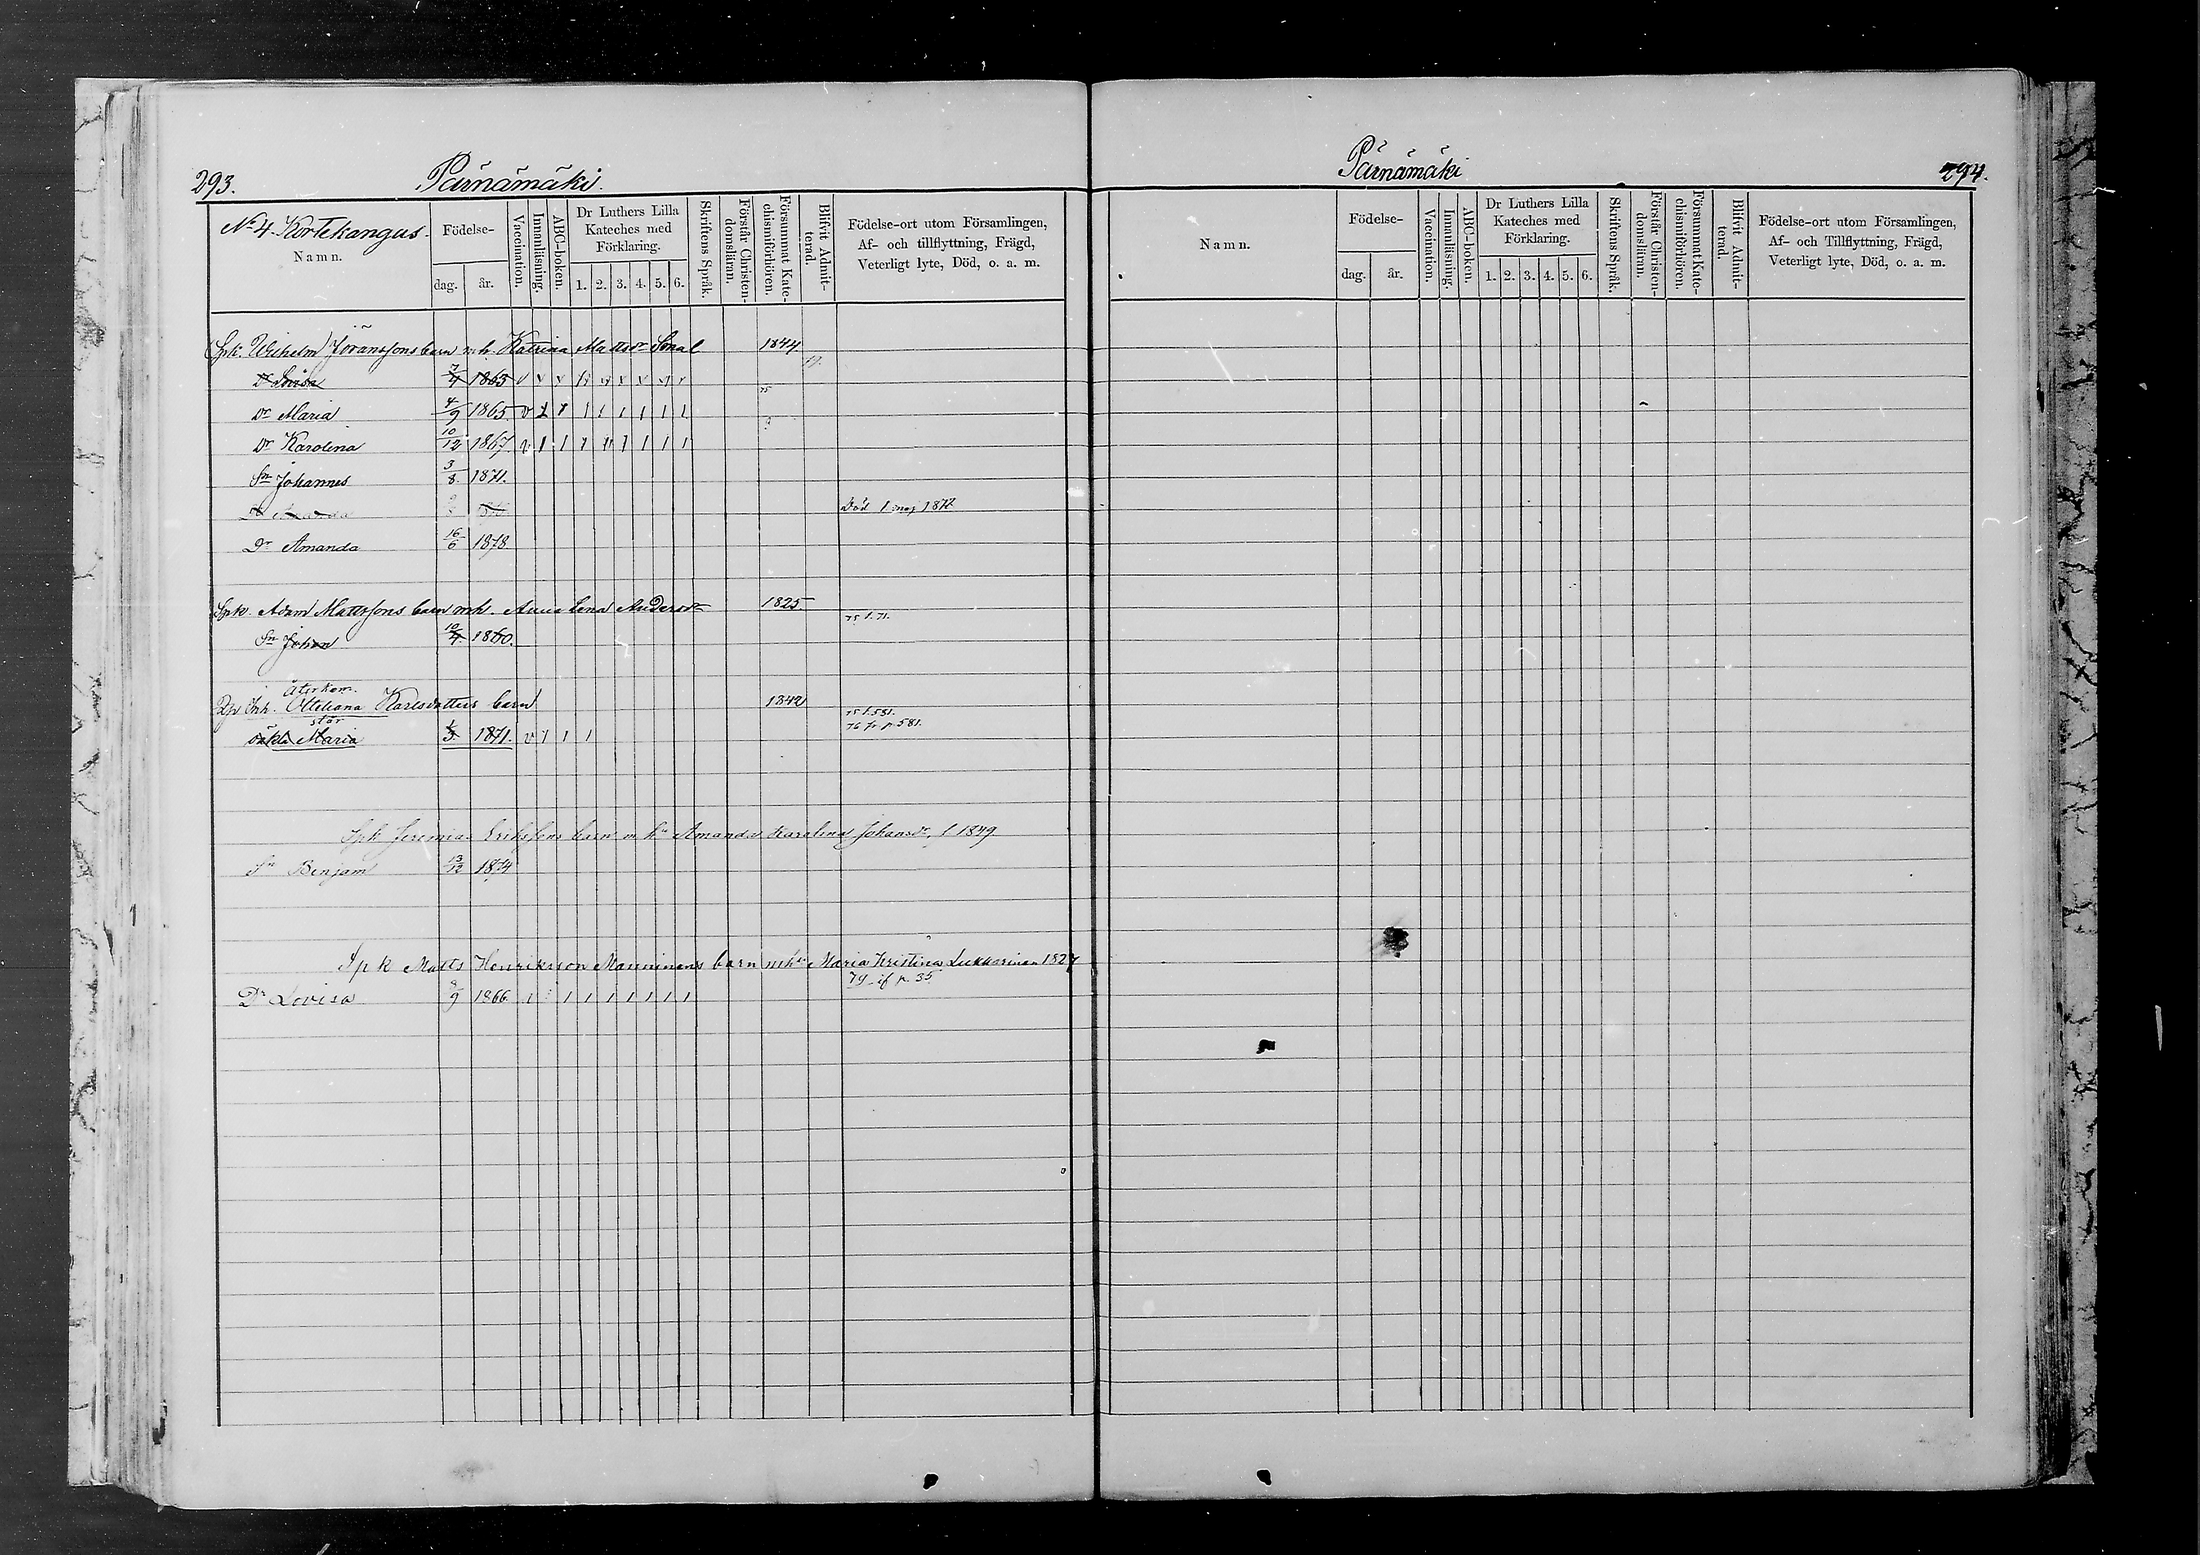 293. Pärnämäki.
No 4 Kortekangus.
Namn.
Födelse-
dag. år.
Vaccination.
Innanläsning.
ABC-boken.
Dr Luthers Lilla
Kateches med
Förklaring.
1. 2. 3. 4. 5. 6.
Skriftens Språk.
Förstår Christen-
domsläran.
Försummat Kate-
chismiförhören.
Blifvit Admit-
terad.
Födelse-ort utom Församlingen,
Af- och tillflyttning, Frägd,
Veterligt lyte, Död, o. a. m.
Spk. Wilhelm Jöranssons barn m.h. Katrina Mattsdr 1844
Dr Lovisa 7/4 1863 v
75
Dr Maria 4/9 1865. v
Dr Karolina 10/12 1867. v
Sn Johannes 3/8. 1871.
Dr Amanda Död 1 maj 1878
Dr Amanda 16/6 1878
Spk. Adam Mattssons barn mh. Anna Lena Andersdr 1825
75 f. 71.
Sn Johan 10/4. 1860.
återkom.
Ottiliana Karlsdotters barn 1842
75 f. 581.
står
76 fr. p. 581.
oäkta Maria 1/3 1871. v
Spk Jeremias Erikssons barn m hu Amanda Karolina Johansdr f 1849
Sn Benjam 13/12 1874
Spk Matts Henriksson Manninens barn mhu Maria Kristina Lukkarinen 1827
79 if p. 35
Dr Lovisa 8/9 1866.
Pärnämäki 294.
Namn.
Födelse-
dag. år.
Vaccination.
Innanläsning.
ABC-boken.
Dr Luthers Lilla
Kateches med
Förklaring.
1. 2. 3. 4. 5. 6.
Skriftens Språk.
Förstår Christen-
domsläran.
Försummat Kate-
chismiförhören.
Blifvit Admit-
terad.
Födelse-ort utom Församlingen,
Af- och Tillflyttning, Frägd,
Veterligt lyte, Död, o. a. m.